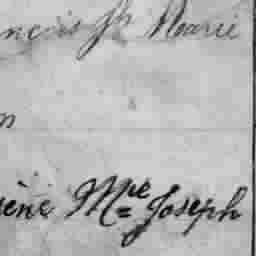 ncois Jh Marie
n
gène Mre Joseph